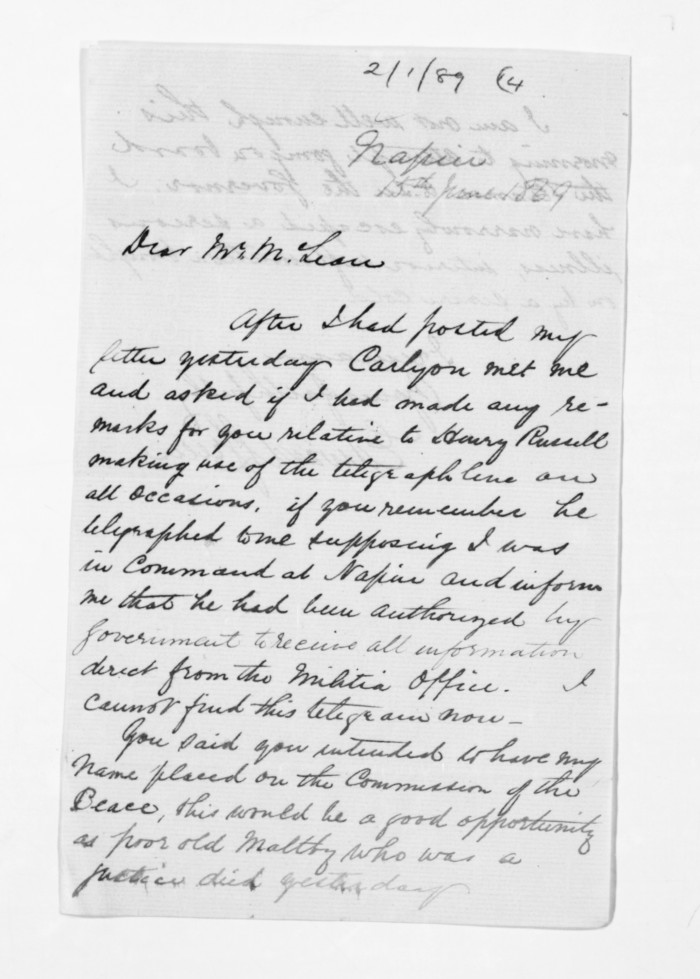 2/1/89 (4
Napier
15th June 1869
Dear Mr. McLean
After I had posted my
letter yesterday Carlyon met me
and asked if I had made any re-
marks for you relative to Henry Russell
making use of the telegraph line on
all occasions, if you remember he
telegraphed to me supposing I was
in Command at Napier and inform
me that he had been authorized by
Government to receive all information
direct from the Militia Office. I
cannot find this telegram now—
You said you intended to have my
Name placed on the Commission of the
Peace, this would be a good opportunity
as poor old Maltby who was a
justice died yesterday